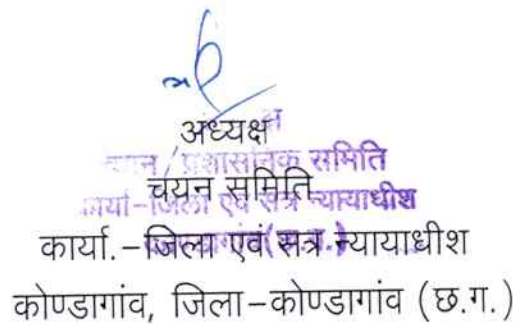 अध्यक्ष
चयन / प्रशासनिक समिति
चयन समिति
कार्या-जिला एवं सत्र न्यायाधीश
कार्या.-जिला एवं सत्र न्यायाधीश
कोण्डागांव, जिला-कोण्डागांव (छ.ग.)